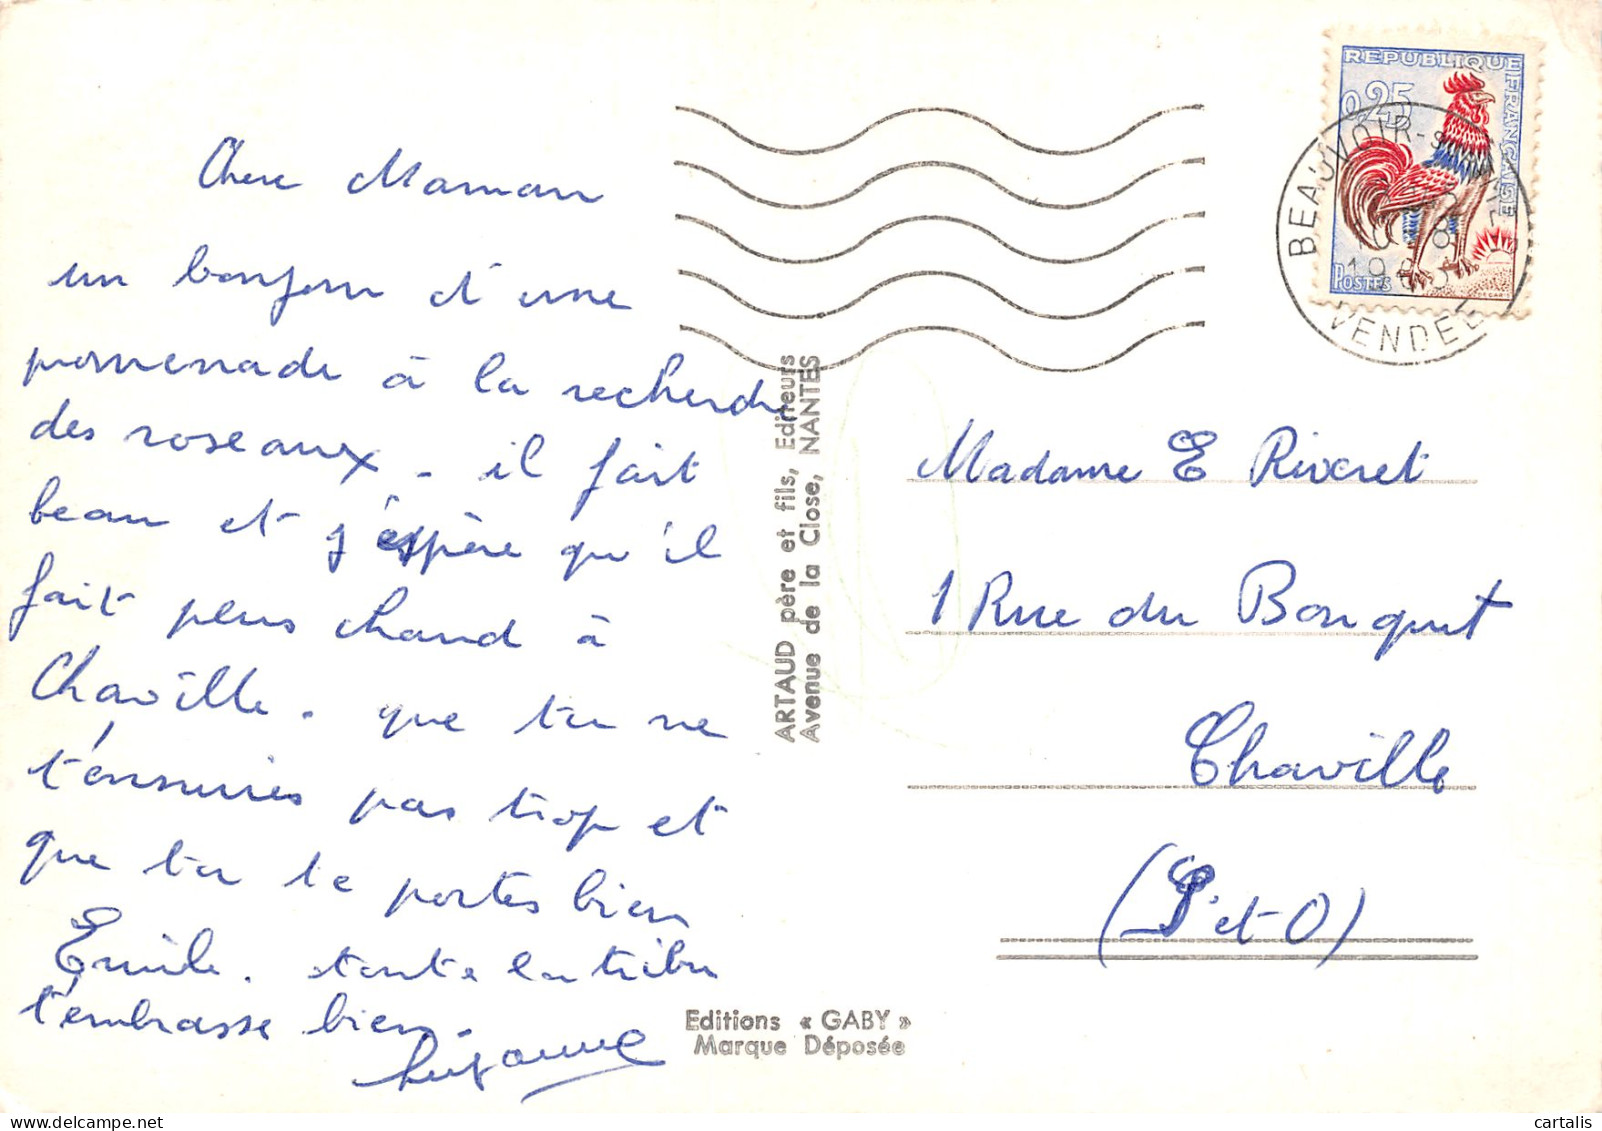 Chere Maman
un bonjour et d'une
promenade à la recherche
des roseaux - il fait
beau et j'éspère qu'il
fait plus chaud à
Chaville. que tu ne
t'ennuies pas trop et
que tu te portes bien
Emile. toute la tribu
t'embrasse bien.
Suzanne
ARTAUD père et fils, Editeurs
Avenue de la Close, NANTES
Editions « GABY »
Marque Déposée
REPUBLIQUE FRANÇAISE
0,25
POSTES
BEAUVOIR-S
VENDEE
Madame E Riveret
1 Rue du Bouquet
Chaville
(S et-O)
delcampe.net
cartalis